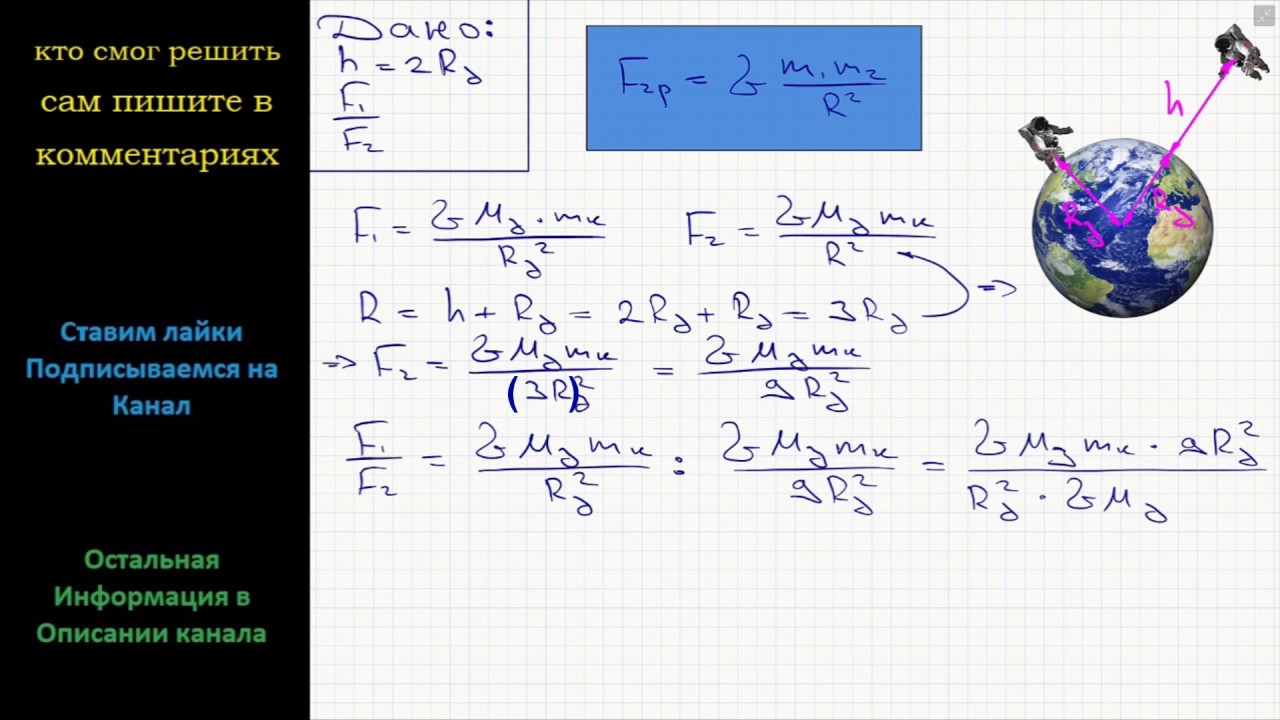 кто смог решить
сам пишите в
комментариях
Ставим лайки
Подписываемся на
Канал
Остальная
Информация в
Описании канала
Дано:
h = 2Rз
F₁/F₂
Fгр = G m₁m₂/R²
h
Rз
Rз
F₁ = G Mз · mк/Rз²
F₂ = G Mз mк/R²
R = h + Rз = 2Rз + Rз = 3Rз =>
=> F₂ = G Mз mк/(3Rз)² = G Mз mк/9Rз²
F₁/F₂ = G Mз mк/Rз² : G Mз mк/9Rз² = G Mз mк · 9Rз²/Rз² · G Mз